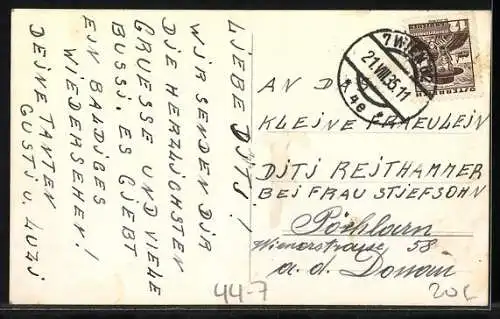 LIEBE DITI!
WIR SENDEN DIR
DIE HERZLICHSTEN
GRUESSE UND VIELE
BUSSI. ES GIEBT
EIN BALDIGES
WIEDERSEHEN!
DEINE TANTEN
GUSTI U. LUZI
21.VIII.35.11
* 4e *
AN DAS
KLEINE FRAEULEIN
DITI REITHAMMER
BEI FRAU STIEFSOHN
Pöchlarn
Wienerstrasse 58
a. d. Donau
44-7